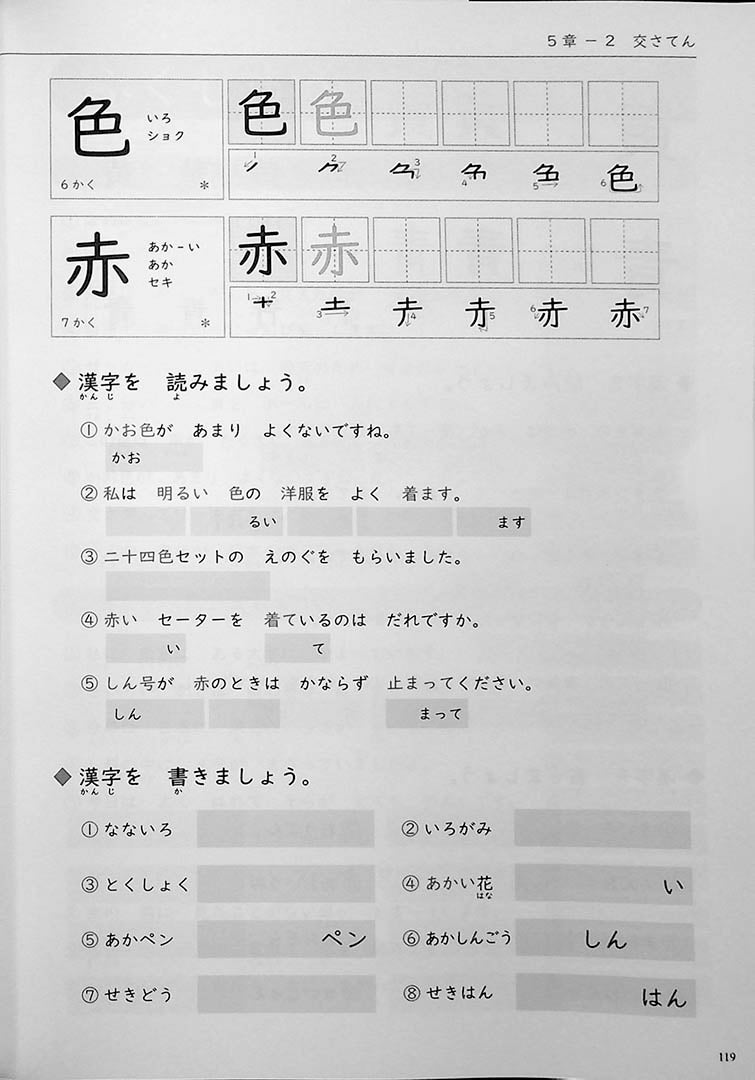 5章－2 交さてん
色 いろ ショク 6かく ＊
色 色
1 2 3 4 5 6
赤 あか－い あか セキ 7かく ＊
赤 赤
1 2 3 4 5 6 7
◆漢字を 読みましょう。
かんじ よ
①かお色が あまり よくないですね。
かお
②私は 明るい 色の 洋服を よく 着ます。
るい ます
③二十四色セットの えのぐを もらいました。
④赤い セーターを 着ているのは だれですか。
い て
⑤しん号が 赤のときは かならず 止まってください。
しん まって
◆漢字を 書きましょう。
かんじ か
①なないろ ②いろがみ
③とくしょく ④あかい花 い
はな
⑤あかペン ペン ⑥あかしんごう しん
⑦せきどう ⑧せきはん はん
119